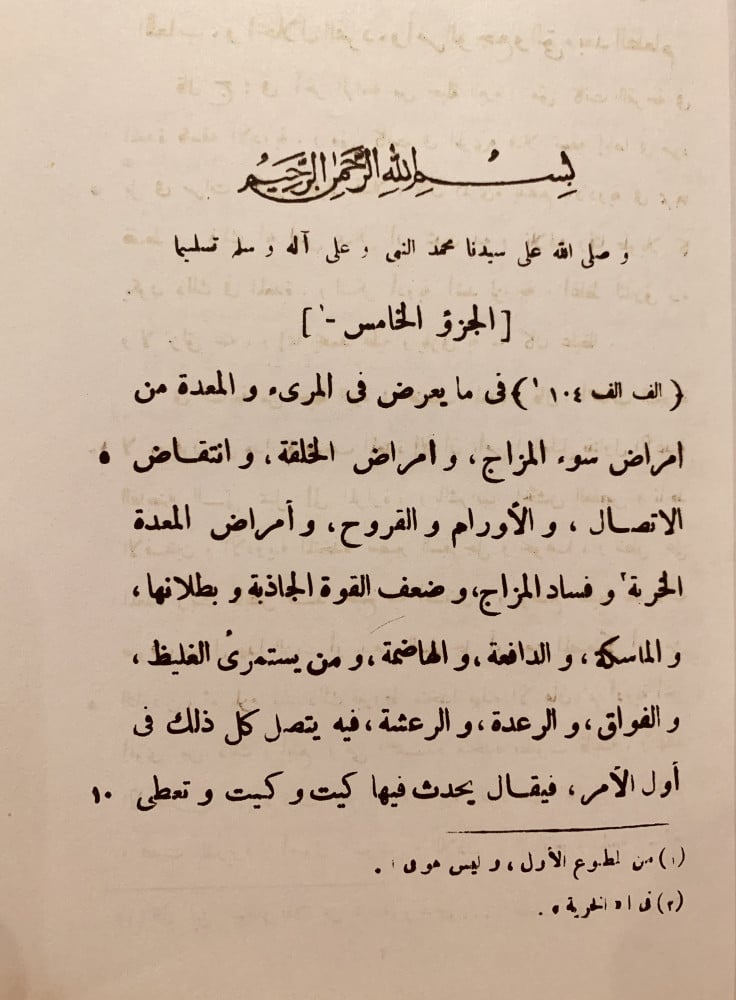 بسم الله الرحمن الرحيم
و صلى الله على سيدنا محمد النبى و على آله و سلم تسليما
[الجزؤ الخامس -¹]
﴿ الف الف ١٠٤ ¹ ﴾ فى ما يعرض فى المرىء و المعدة من
امراض سوء المزاج، و امراض الخلقة، و انتقاض ٥
الاتصال، و الأورام و القروح، و أمراض المعدة
الخربة² و فساد المزاج، و ضعف القوة الجاذبة و بطلانها،
و الماسكة، و الدافعة، و الهاضمة، و من يستمرئ الغليظ،
و الفواق، و الرعدة، و الرعشة، فيه يتصل كل ذلك فى
أول الأمر، فيقال يحدث فيها كيت و كيت و تعطى ١٠
(١) من المطبوع الأول، و ليس هو فى ا .
(٢) فى ا